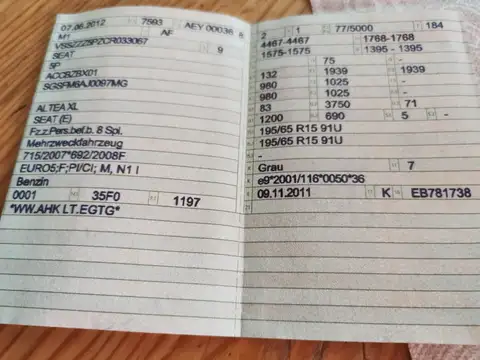 07.08.2012 7593 AEY 00036 8
M1 AF
VSSZZZ5PZCR033067 9
SEAT
5P
ACCBZBX01
SGSFM6AJ0097MG
ALTEA XL
SEAT (E)
Fz.z.Pers.bef.b. 8 Spl.
Mehrzweckfahrzeug
715/2007*692/2008F
EURO5;F;PI/CI; M, N1 I
Benzin
0001 35F0 1197
*WW.AHK LT.EGTG*
2 1 77/5000 184
4467-4467 1768-1768
1575-1575 1395 - 1395
- 75 -
132 1939 1939
980 1025 -
980 1025 -
83 3750 71
1200 690 5 -
195/65 R15 91U
195/65 R15 91U
-
Grau 7
e9*2001/116*0050*36
09.11.2011 K EB781738